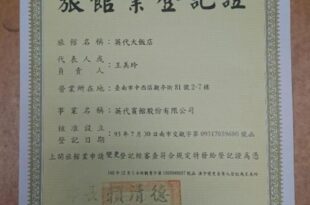 旅館業登記證
旅館名稱：英代大飯店
代表人或
負責人：王美玲
營業所在：臺南市中西區觀亭街81號2-7樓
事業名稱：英代賓館股份有限公司
核准設立
登記：93年7月30日南市交觀字第09317039690號函
上開旅館業申請變更登記經審查符合規定特發給登記證為憑
賴清德